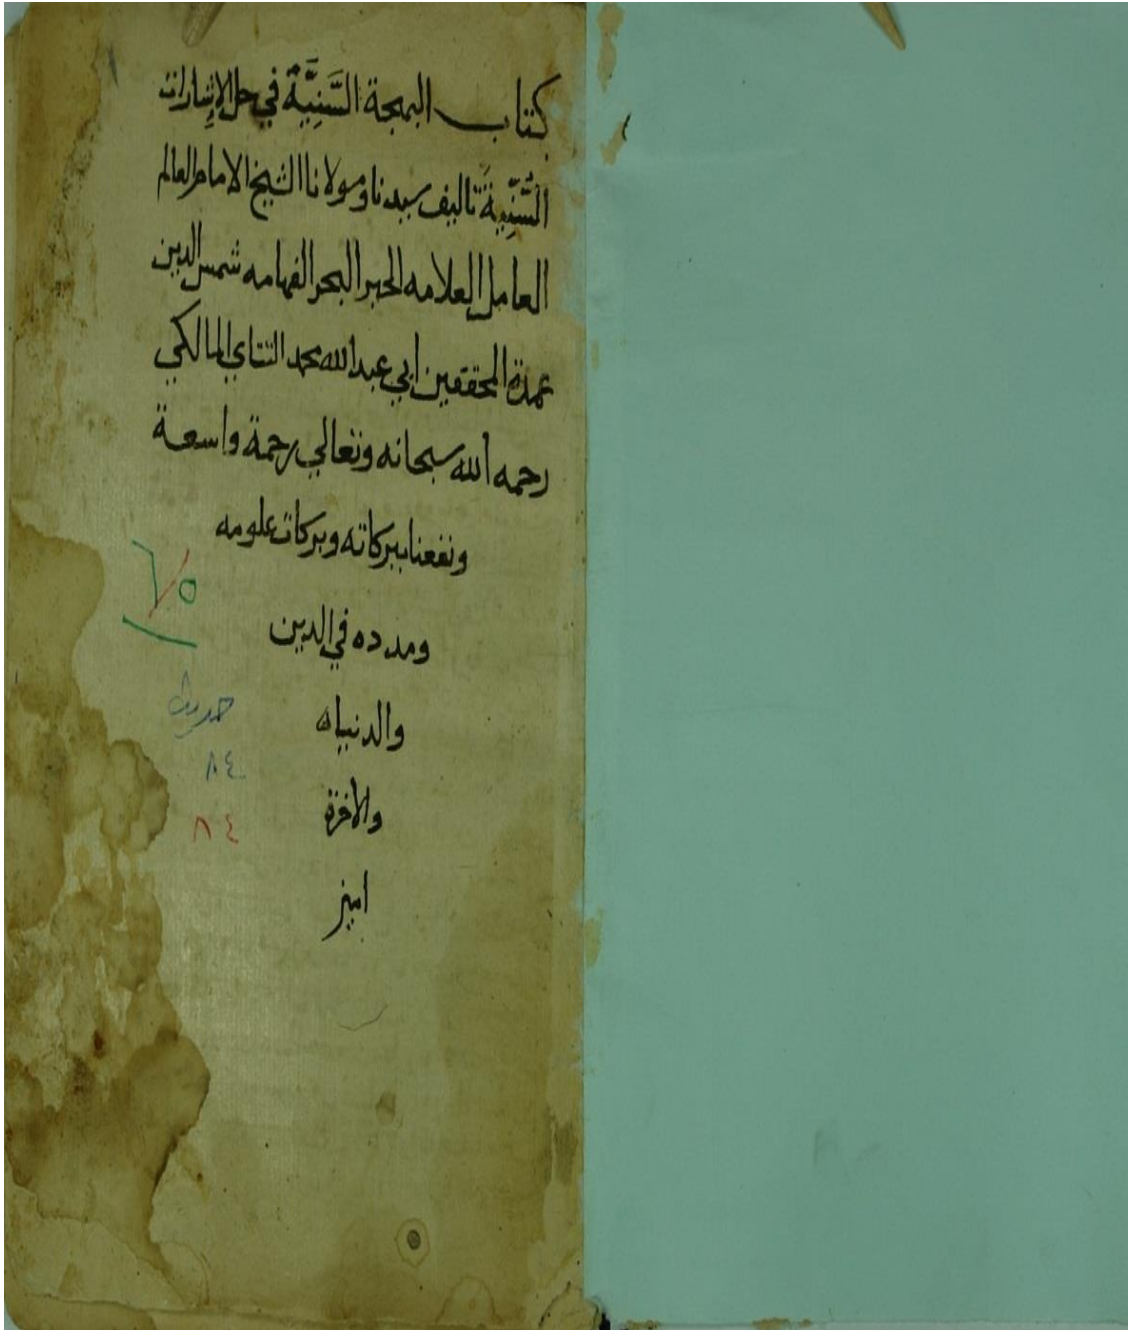 كتاب البهجة السَّنِيَّة في حل الإشارات
السُّنِّية تاليف سيدنا ومولانا الشيخ الامام العالم
العامل العلامه الحبر البحر الفهامه شمس الدين
عمدة المحققين ابي عبد الله محمد التتاي المالكي
رحمه الله سبحانه وتعالي رحمة واسعة
ونفعنا ببركاته وبركات علومه
ومدده في الدين
والدنياه
والاخرة
امين
٦٥
حديث
٨٤
٨٤